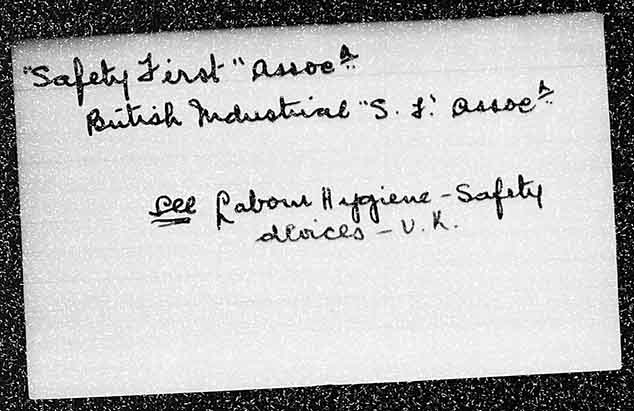 "Safety First" Assocⁿ
British Industrial "S. F." Assocⁿ
see Labour Hygiene - Safety
devices - U. K.